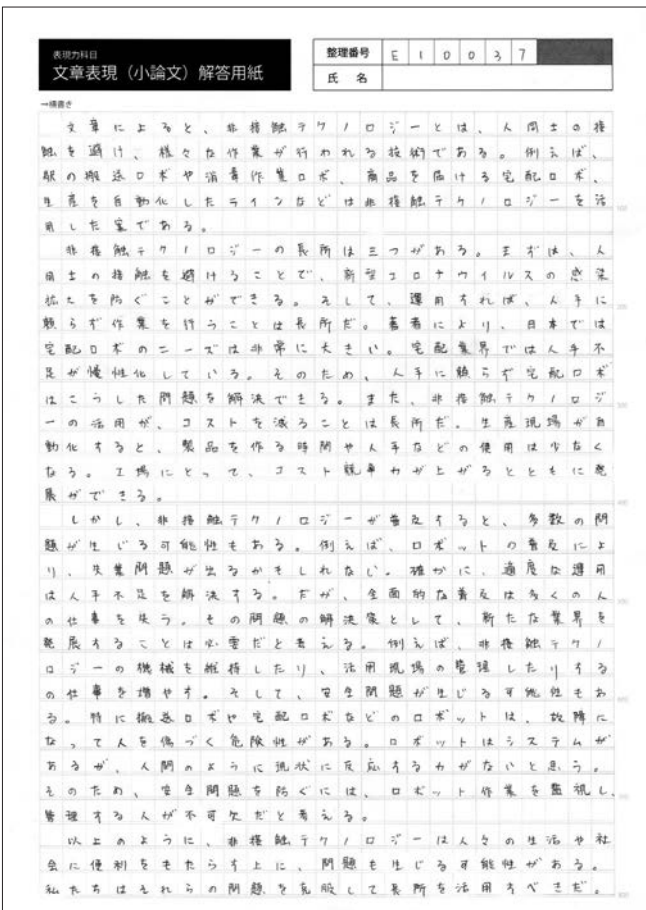 表現力科目
文章表現（小論文）解答用紙
整理番号 E10037
氏 名
→横書き
文章によると、非接触テクノロジーとは、人間士の接
触を避け、様々な作業が行われる技術である。例えば、
駅の搬送ロボや消毒作業ロボ、商品を届ける宅配ロボ、
生産を自動化したラインなどは非接触テクノロジーを活
用した案である。
非接触テクノロジーの長所は三つがある。まずは、人
間士の接触を避けることで、新型コロナウイルスの感染
拡大を防ぐことができる。そして、運用すれば、人手に
頼らず作業を行うことは長所だ。著者により、日本では
宅配ロボのニーズは非常に大きい。宅配業界では人手不
足が慢性化している。そのため、人手に頼らず宅配ロボ
はこうした問題を解決できる。また、非接触テクノロジ
ーの活用が、コストを減ることは長所だ。生産現場が自
動化すると、製品を作る時間や人手などの使用は少なく
なる。工場にとって、コスト競争力が上がるとともに発
展ができる。
しかし、非接触テクノロジーが普及すると、多数の問
題が生じる可能性もある。例えば、ロボットの普及によ
り、失業問題が出るかもしれない。確かに、適度な運用
は人手不足を解決する。だが、全面的な普及は多くの人
の仕事を失う。その問題の解決策として、新たな業界を
発展することは必要だと考える。例えば、非接触テクノ
ロジーの機械を維持したり、活用現場の管理したりする
の仕事を増やす。そして、安全問題が生じる可能性もあ
る。特に搬送ロボや宅配ロボなどのロボットは、故障に
なって人を傷づく危険性がある。ロボットはシステムが
あるが、人間のように現状に反応する力がないと思う。
そのため、安全問題を防ぐには、ロボット作業を監視し、
管理する人が不可欠だと考える。
以上のように、非接触テクノロジーは人々の生活や社
会に便利をもたらす上に、問題も生じる可能性がある。
私たちはそれらの問題を克服して長所を活用すべきだ。